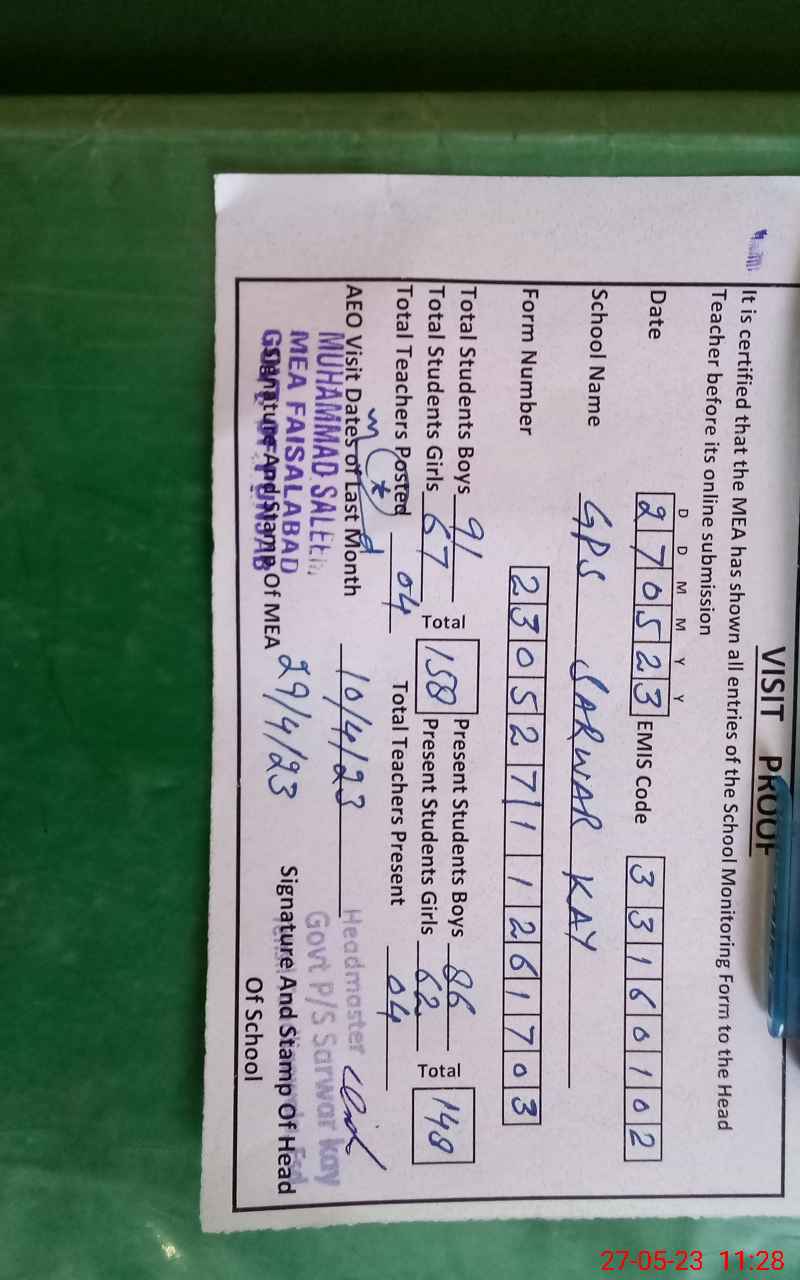 VISIT PROOF
It is certified that the MEA has shown all entries of the School Monitoring Form to the Head
Teacher before its online submission
D D M M Y Y
Date 270523 EMIS Code 33160102
School Name GPS SARWAR KAY
Form Number 23052711261703
Total Students Boys 91 Total 158 Present Students Boys 86 Total 148
Total Students Girls 67 Present Students Girls 62
Total Teachers Posted 04 Total Teachers Present 04
AEO Visit Dates of Last Month 10/4/23
29/4/23
MUHAMMAD SALEEM
MEA FAISALABAD
GOVT OF PUNJAB
Signature And Stamp Of MEA
Headmaster
Govt P/S Sarwar Kay
Signature And Stamp Of Head
Of School
27-05-23 11:28